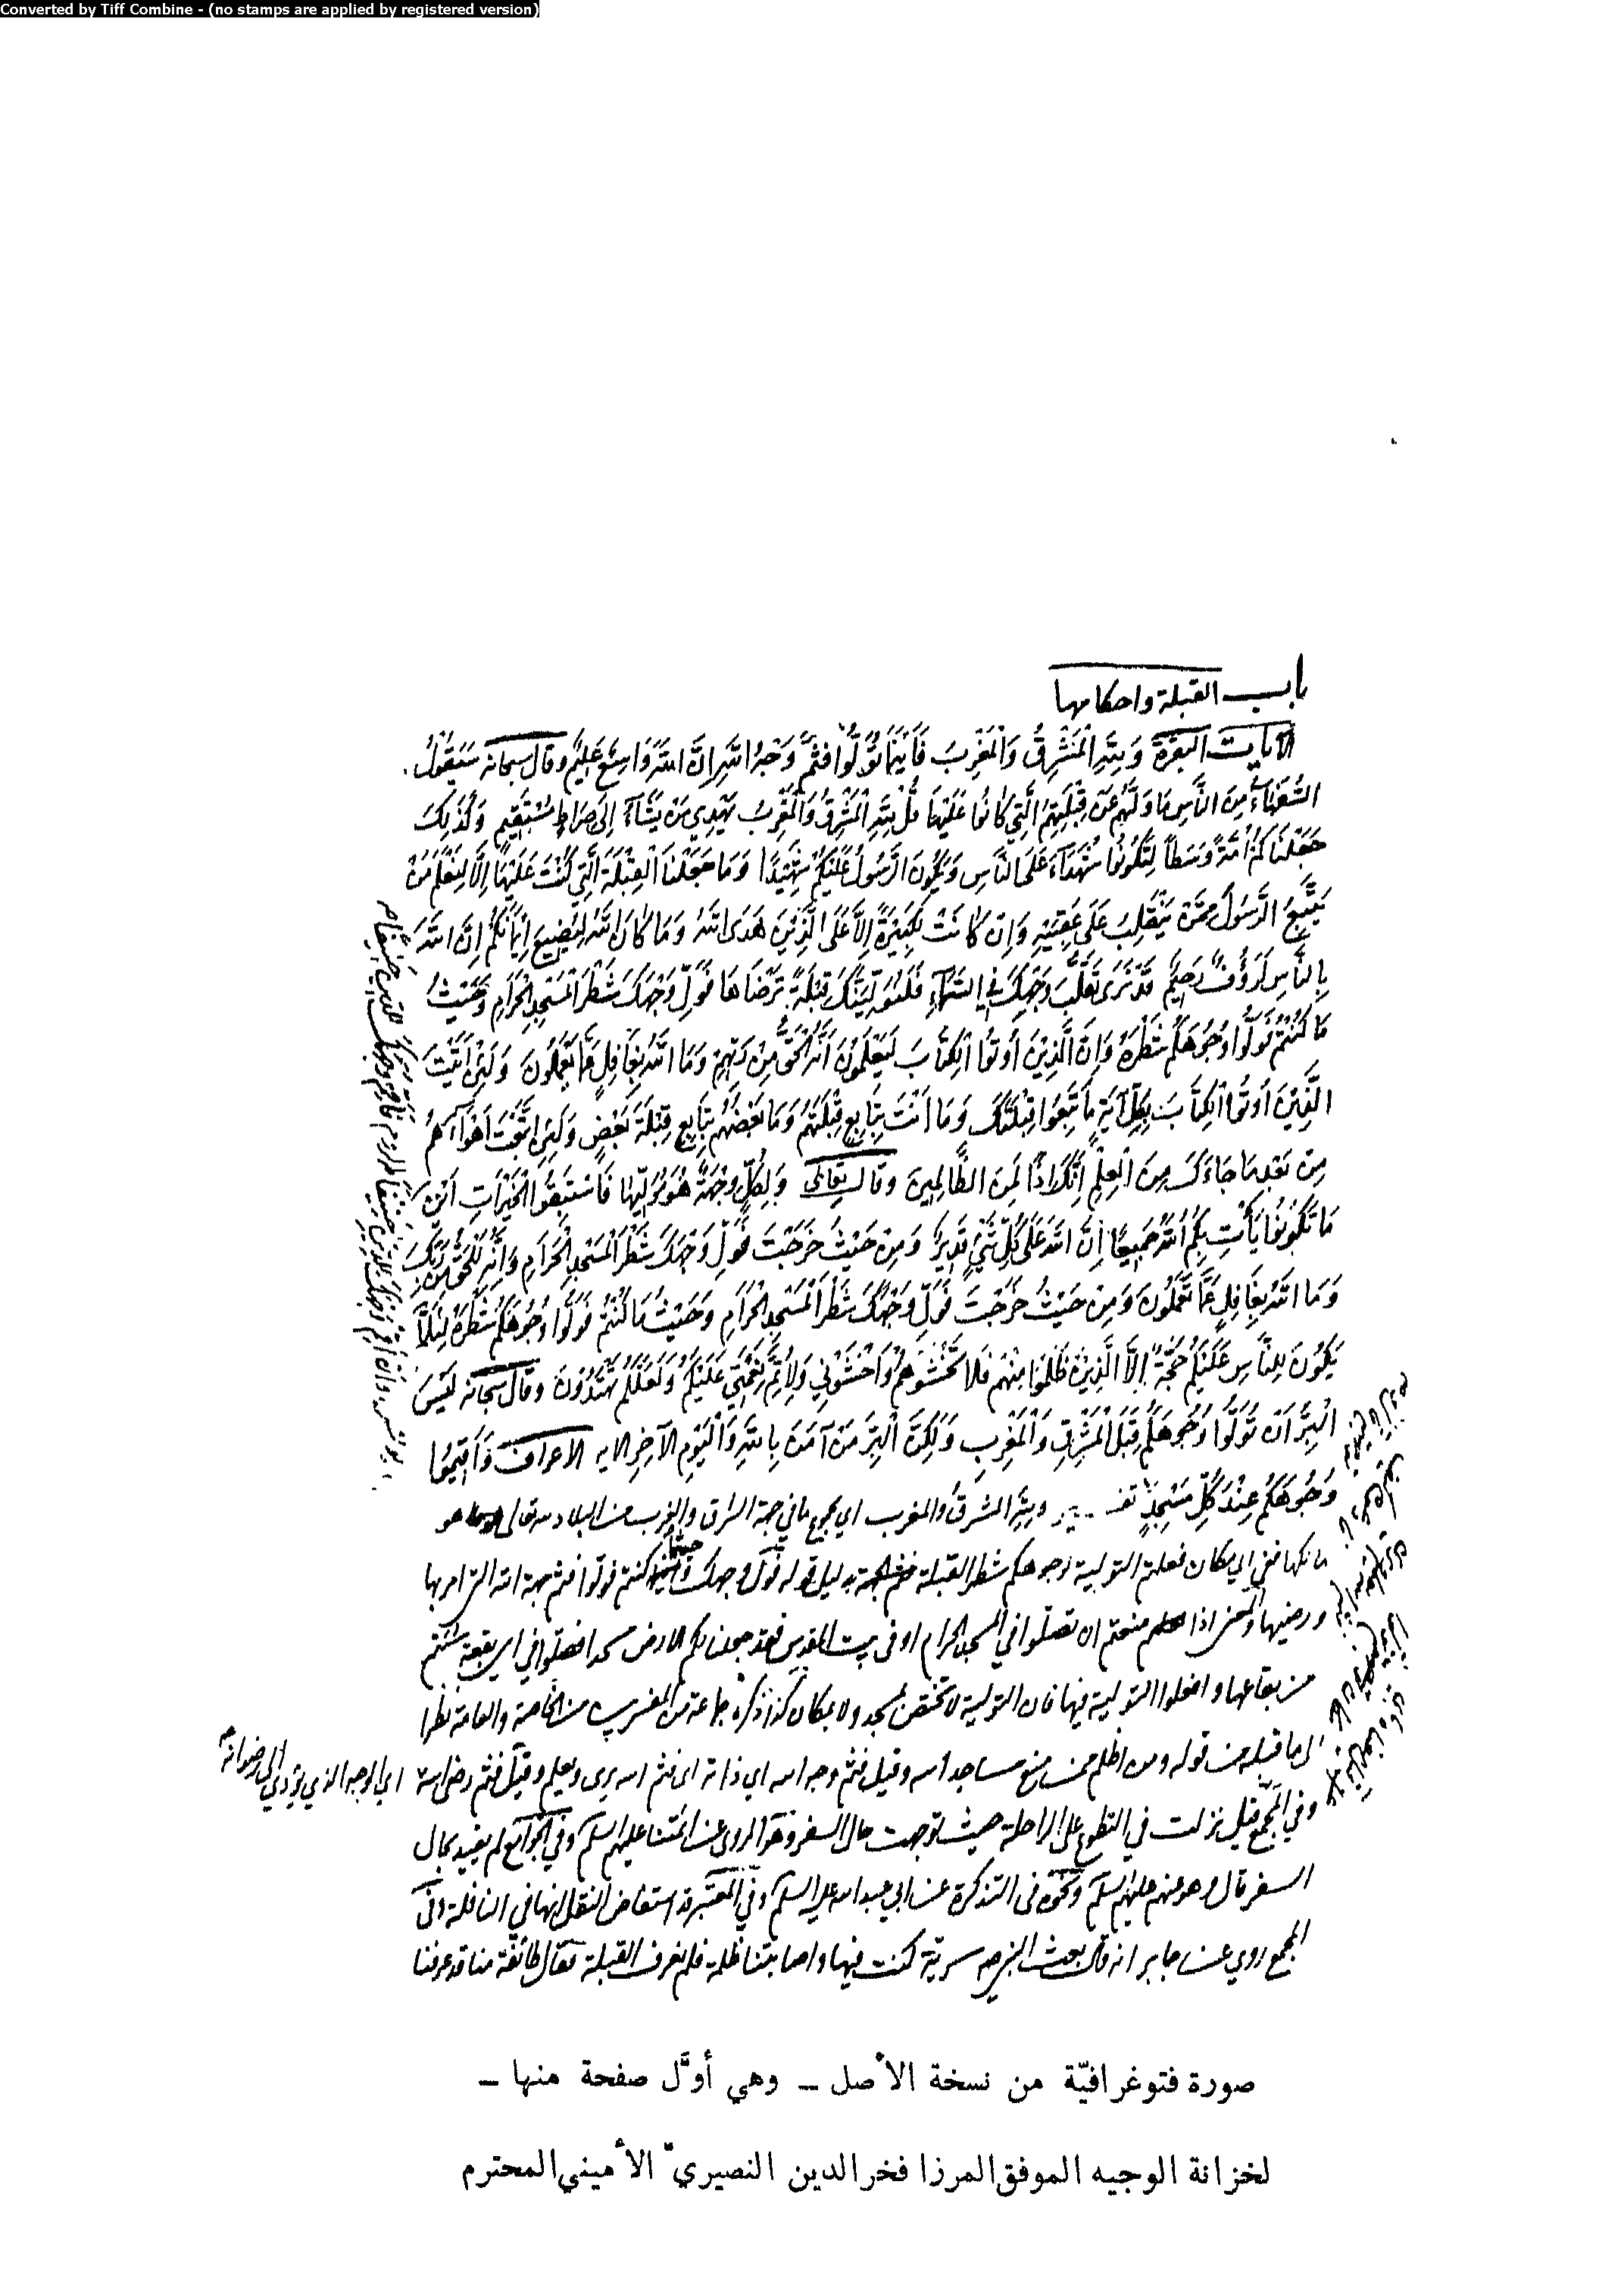 Converted by Tiff Combine - (no stamps are applied by registered version)
باب القبلة واحكامها
الآيات البقرة وَلِلَّهِ الْمَشْرِقُ وَالْمَغْرِبُ فَأَيْنَمَا تُوَلُّوا فَثَمَّ وَجْهُ اللَّهِ إِنَّ اللَّهَ وَاسِعٌ عَلِيمٌ وقال سبحانه سَيَقُولُ
السُّفَهَاءُ مِنَ النَّاسِ مَا وَلَّهُمْ عَنْ قِبْلَتِهِمُ الَّتِي كَانُوا عَلَيْهَا قُلْ لِلَّهِ الْمَشْرِقُ وَالْمَغْرِبُ يَهْدِي مَنْ يَشَاءُ إِلَى صِرَاطٍ مُسْتَقِيمٍ وَكَذَلِكَ
جَعَلْنَاكُمْ أُمَّةً وَسَطًا لِتَكُونُوا شُهَدَاءَ عَلَى النَّاسِ وَيَكُونَ الرَّسُولُ عَلَيْكُمْ شَهِيدًا وَمَا جَعَلْنَا الْقِبْلَةَ الَّتِي كُنْتَ عَلَيْهَا إِلَّا لِنَعْلَمَ مَنْ
يَتَّبِعُ الرَّسُولَ مِمَّنْ يَنْقَلِبُ عَلَى عَقِبَيْهِ وَإِنْ كَانَتْ لَكَبِيرَةً إِلَّا عَلَى الَّذِينَ هَدَى اللَّهُ وَمَا كَانَ اللَّهُ لِيُضِيعَ إِيمَانَكُمْ إِنَّ اللَّهَ
بِالنَّاسِ لَرَؤُفٌ رَحِيمٌ قَدْ نَرَى تَقَلُّبَ وَجْهِكَ فِي السَّمَاءِ فَلَنُوَلِّيَنَّكَ قِبْلَةً تَرْضَاهَا فَوَلِّ وَجْهَكَ شَطْرَ الْمَسْجِدِ الْحَرَامِ وَحَيْثُ
مَا كُنْتُمْ فَوَلُّوا وُجُوهَكُمْ شَطْرَهُ وَإِنَّ الَّذِينَ أُوتُوا الْكِتَابَ لَيَعْلَمُونَ أَنَّهُ الْحَقُّ مِنْ رَبِّهِمْ وَمَا اللَّهُ بِغَافِلٍ عَمَّا يَعْمَلُونَ وَلَئِنْ أَتَيْتَ
الَّذِينَ أُوتُوا الْكِتَابَ بِكُلِّ آيَةٍ مَا تَبِعُوا قِبْلَتَكَ وَمَا أَنْتَ بِتَابِعٍ قِبْلَتَهُمْ وَمَا بَعْضُهُمْ بِتَابِعٍ قِبْلَةَ بَعْضٍ وَلَئِنِ اتَّبَعْتَ أَهْوَاءَهُمْ
مِنْ بَعْدِ مَا جَاءَكَ مِنَ الْعِلْمِ إِنَّكَ إِذًا لَمِنَ الظَّالِمِينَ وقال تعالى وَلِكُلٍّ وِجْهَةٌ هُوَ مُوَلِّيهَا فَاسْتَبِقُوا الْخَيْرَاتِ أَيْنَ
مَا تَكُونُوا يَأْتِ بِكُمُ اللَّهُ جَمِيعًا إِنَّ اللَّهَ عَلَى كُلِّ شَيْءٍ قَدِيرٌ وَمِنْ حَيْثُ خَرَجْتَ فَوَلِّ وَجْهَكَ شَطْرَ الْمَسْجِدِ الْحَرَامِ وَإِنَّهُ لَلْحَقُّ مِنْ رَبِّكَ
وَمَا اللَّهُ بِغَافِلٍ عَمَّا تَعْمَلُونَ وَمِنْ حَيْثُ خَرَجْتَ فَوَلِّ وَجْهَكَ شَطْرَ الْمَسْجِدِ الْحَرَامِ وَحَيْثُ مَا كُنْتُمْ فَوَلُّوا وُجُوهَكُمْ شَطْرَهُ لِئَلَّا
يَكُونَ لِلنَّاسِ عَلَيْكُمْ حُجَّةٌ إِلَّا الَّذِينَ ظَلَمُوا مِنْهُمْ فَلَا تَخْشَوْهُمْ وَاخْشَوْنِي وَلِأُتِمَّ نِعْمَتِي عَلَيْكُمْ وَلَعَلَّكُمْ تَهْتَدُونَ وقال سبحانه لَيْسَ
الْبِرَّ أَنْ تُوَلُّوا وُجُوهَكُمْ قِبَلَ الْمَشْرِقِ وَالْمَغْرِبِ وَلَكِنَّ الْبِرَّ مَنْ آمَنَ بِاللَّهِ وَالْيَوْمِ الْآخِرِ الايه الاعراف وَأَقِيمُوا
وُجُوهَكُمْ عِنْدَ كُلِّ مَسْجِدٍ ولله المشرق والمغرب اي مجموع ما في جهة الشرق والغرب من البلاد لله تعالى هو
مالكها ففي اي مكان فعلتم التولية لوجوهكم شطر القبلة فثم الجهة بدليل قوله فول وجهك وحيثما كنتم فولوا فثم جهة الله التي امر بها
ورضيها والمعنى اذا منعتم ان تصلوا في المسجد الحرام او في بيت المقدس فقد جعلنا لكم الارض مسجدا فصلوا في اي بقعة شئتم
من بقاعها وافعلوا التولية فيها فان التولية لا تختص بمسجد ولا بمكان كذا ذكره جماعة من المفسرين من الخاصة والعامة نظرا
الى ما قبله من قوله ومن اظلم ممن منع مساجد الله وقيل فثم وجه الله اي ذاته اي فثم الله يرى ويعلم وقيل فثم رضى الله اي الوجه الذي يؤدي الى رضوانه
وفي المجمع قيل نزلت في التطوع على الراحلة حيث توجهت حال السفر وهو المروي عن ائمتنا عليهم السلم وفي الجوامع لم يقيد بحال
السفر قال وهو عنهم عليهم السلم ونحوه في التذكرة عن ابي عبدالله عليه السلم وفي المعتبر قد استفاض النقل انها في النافلة وفي
المجمع روي عن جابر انه قال بعث النبي صه سرية كنت فيها واصابتنا ظلمة فلم نعرف القبلة فقال طائفة منا قد عرفنا
صورة فتوغرافيّة من نسخة الأصل ــ وهي أوَّل صفحة منها ــ
لخزانة الوجيه الموفق المرزا فخرالدين النصيريّ الأميني المحترم